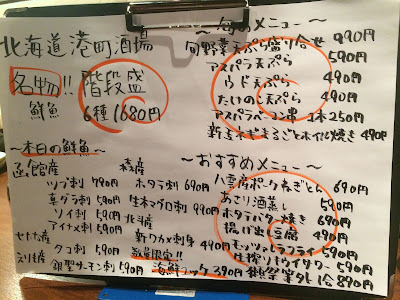 北海道港町酒場
名物!! 階段盛
鮮魚 6種1680円
～本日の鮮魚～
函館産
ツブ刺 790円
真ダラ刺 590円
ソイ刺 590円
アイナメ刺 590円
せたな産
タコ刺 590円
えりも産
銀聖サーモン刺 590円
森産
ホタテ刺 690円
生本マグロ刺 990円
北斗産
新ワカメ刺身 490円
数量限定!!
海鮮ユッケ 390円
～旬のメニュー～
旬野菜天ぷら盛り合せ 990円
アスパラ天ぷら 590円
ウド天ぷら 490円
たけのこ天ぷら 490円
アスパラベーコン串 1本250円
新玉ネギまるごとホイル焼き 490円
～おすすめメニュー～
八雲産ポークねぎとん 690円
あさり酒蒸し 590円
ホタテバター焼き 690円
揚げ出し豆腐 490円
モッツァレラフライ 590円
生搾り 590円
外1合 890円